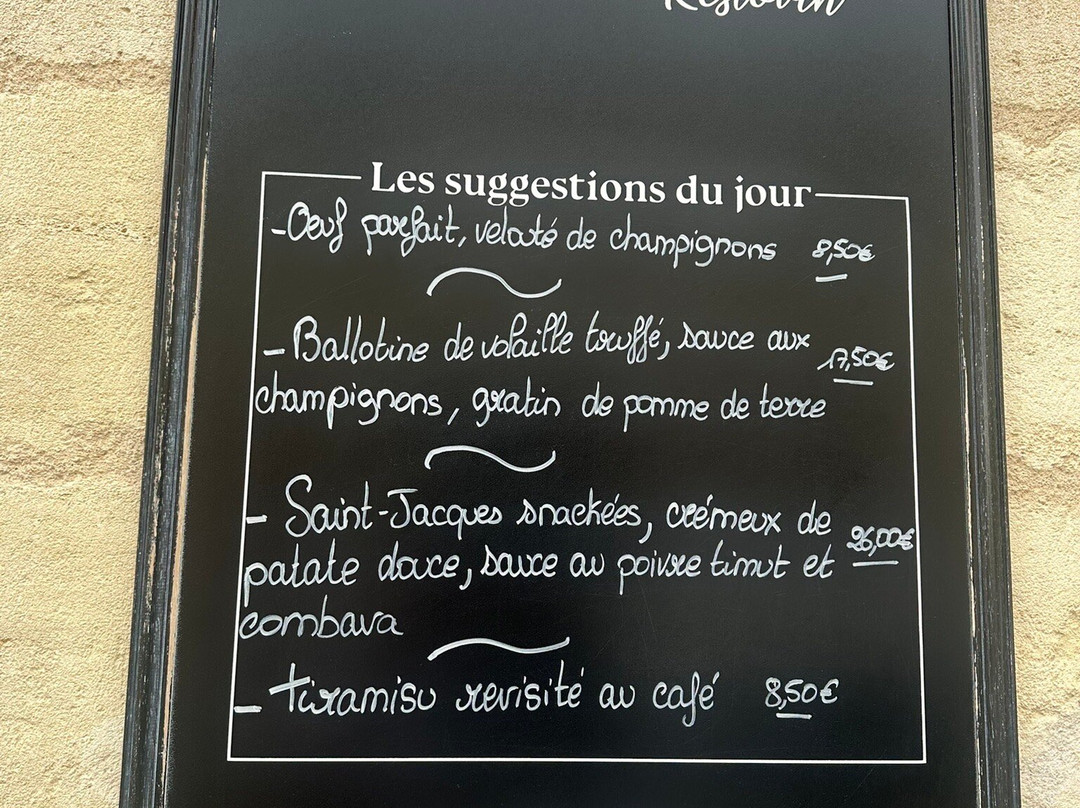 Les suggestions du jour
- Oeuf parfait, velouté de champignons 8,50€
- Ballotine de volaille truffé, sauce aux 17,50€
champignons, gratin de pomme de terre
- Saint-Jacques snackées, crémeux de 26,00€
patate douce, sauce au poivre timut et
combava
- tiramisu revisité au café 8,50€